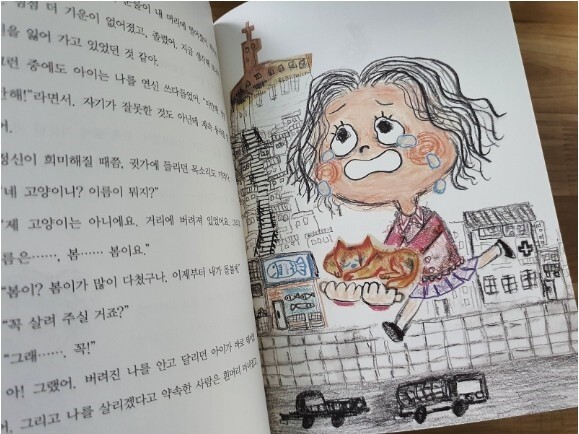 점점 더 기운이 없어졌고, 졸렸어. 지금
을 잃어 가고 있었던 것 같아.
그런 중에도 아이는 나를 연신 쓰다듬었어.
해!"라면서. 자기가 잘못한 것도 아닌데
어.
정신이 희미해질 때쯤, 귓가에 들리던 목소리도
"네 고양이니? 이름이 뭐지?"
"제 고양이는 아니에요. 거리에 버려져 있었어요.
름은……, 봄…… 봄이요."
"봄이? 봄이가 많이 다쳤구나. 이제부터 내가
"꼭 살려 주실 거죠?"
"그래……, 꼭!"
아! 그랬어. 버려진 나를 안고 달리던 아이가 바로
어. 그리고 나를 살리겠다고 약속한 사람은